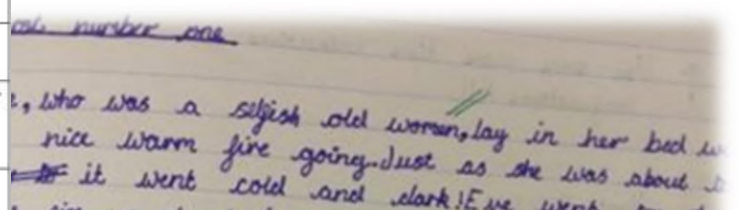 number one
, who was a selfish old women, lay in her bed
nice warm fire going. Just as she was about
it went cold and dark! Eve went